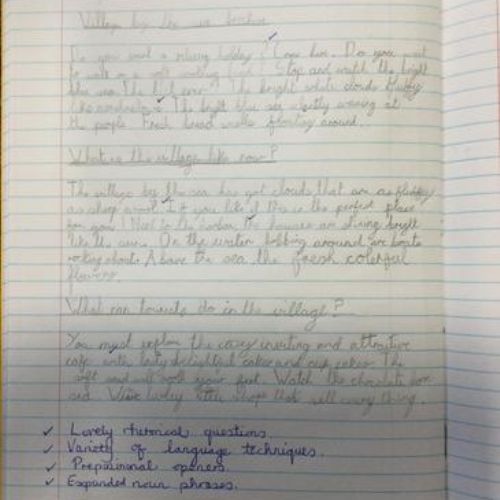 Village by the sea brochure
Do you want a relaxing holiday? Come here. Do you want
to walk on a soft sand? Stop and watch the bright
blue sea. The bright white clouds
The bright blue sea waving at
the people. Fresh bread smells floating around...
What is the village like now?
The village by the sea has got clouds that am as fluffy
as sheep wool. If you like it this is the perfect place
for you! Next to the harbor the houses are shining bright
like the sun. On the water bobbing around are boats
rocking about. Above the sea, the fresh colorful
flowers.
What can tourists do in the village?
You must explore the cosy inviting and attractive
cafe with tasty delighted cakes and cup cakes. The
soft sand will your feet. Watch the chocolate box
and. View shops that sell every thing.
✓ Lovely rhetorical questions.
✓ Variety of language techniques.
✓ Prepositional openers.
✓ Expanded noun phrases.